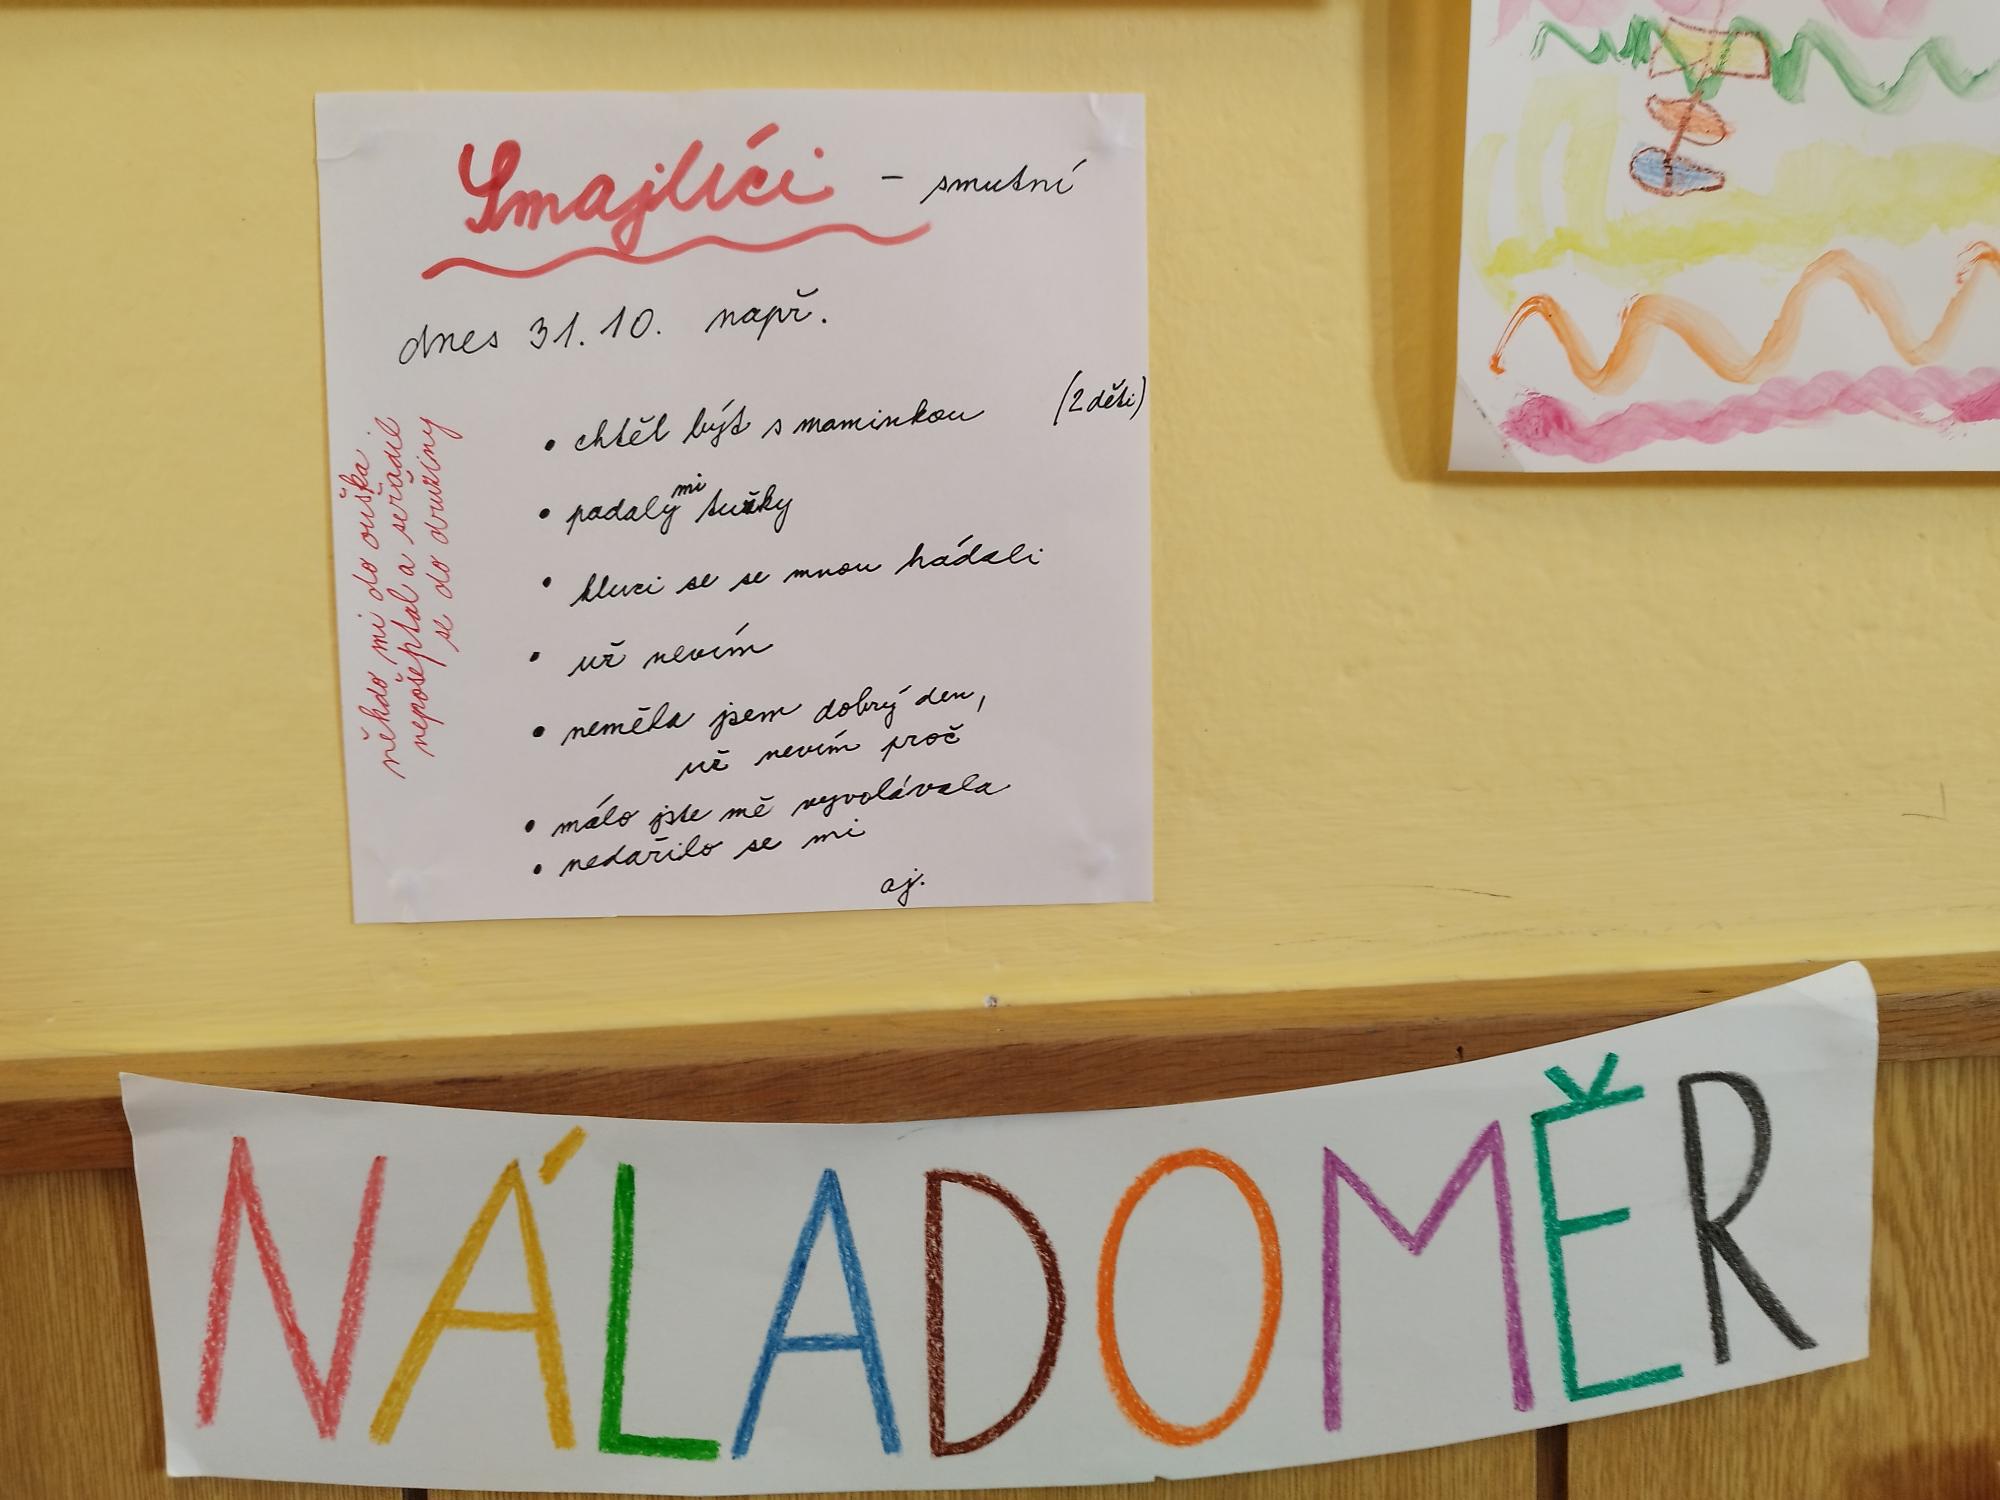 Smajlíci - smutní
dnes 31.10. např.
• chtěl být s maminkou (2 děti)
• padaly mi tužky
• kluci se se mnou hádali
• už nevím
• neměla jsem dobrý den,
už nevím proč
• málo jste mě vyvolávala
• nedařilo se mi
aj.
někdo mi do ouška
nepošeptal a seřadil
se do družiny
NÁLADOMĚR